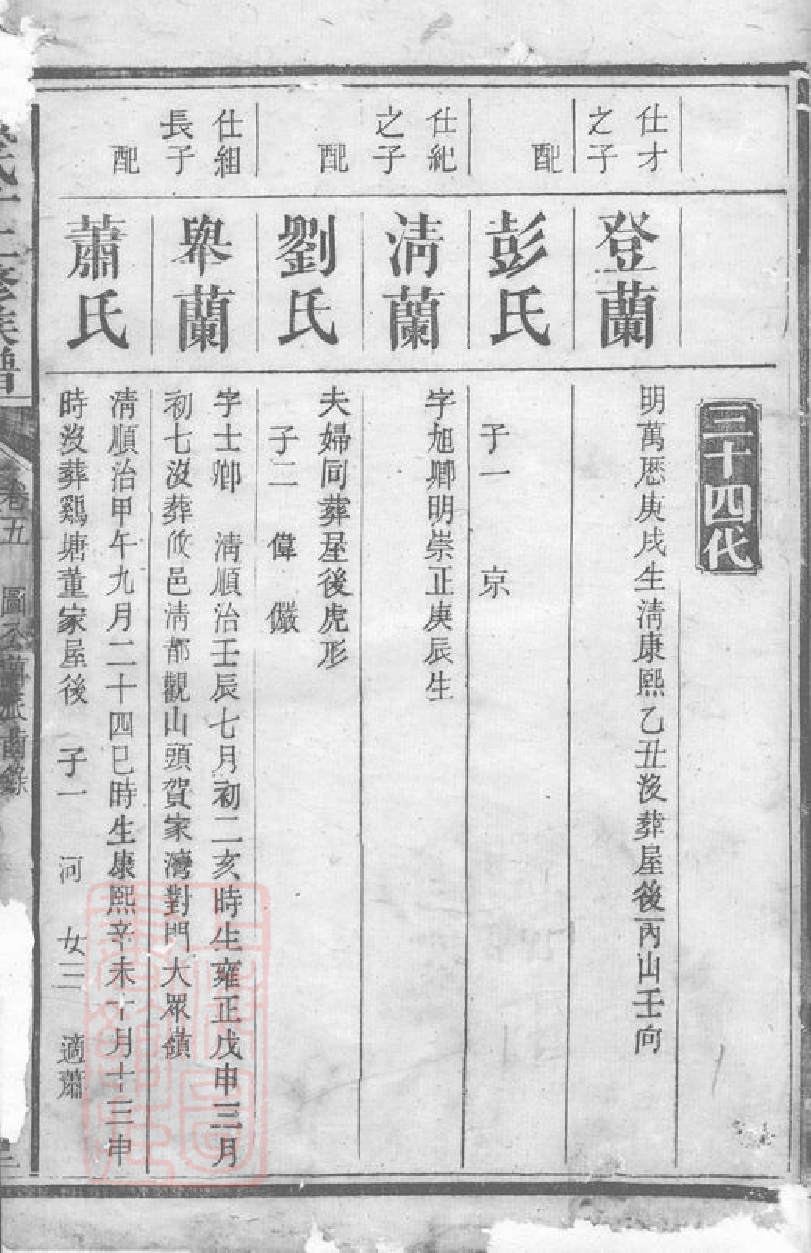 三十四代
仕才
之子
登蘭
明萬厯庚戌生清康熙乙丑沒葬屋後丙山壬向
配
彭氏
子一　京
仕紀
之子
清蘭
字旭卿明崇正庚辰生
配
劉氏
夫婦同葬屋後虎形
子二　偉　儼
仕組
長子
舉蘭
字士鄉　清順治壬辰七月初二亥時生雍正戊申三月
初七沒葬攸邑清都觀山頭賀家灣對門大眾嶺
配
蕭氏
清順治甲午九月二十四巳時生康熙辛未十月十三申
時沒葬鷄塘董家屋後　子一　河　女三　適蕭
修族譜
卷五
圖公蘭派齒錄